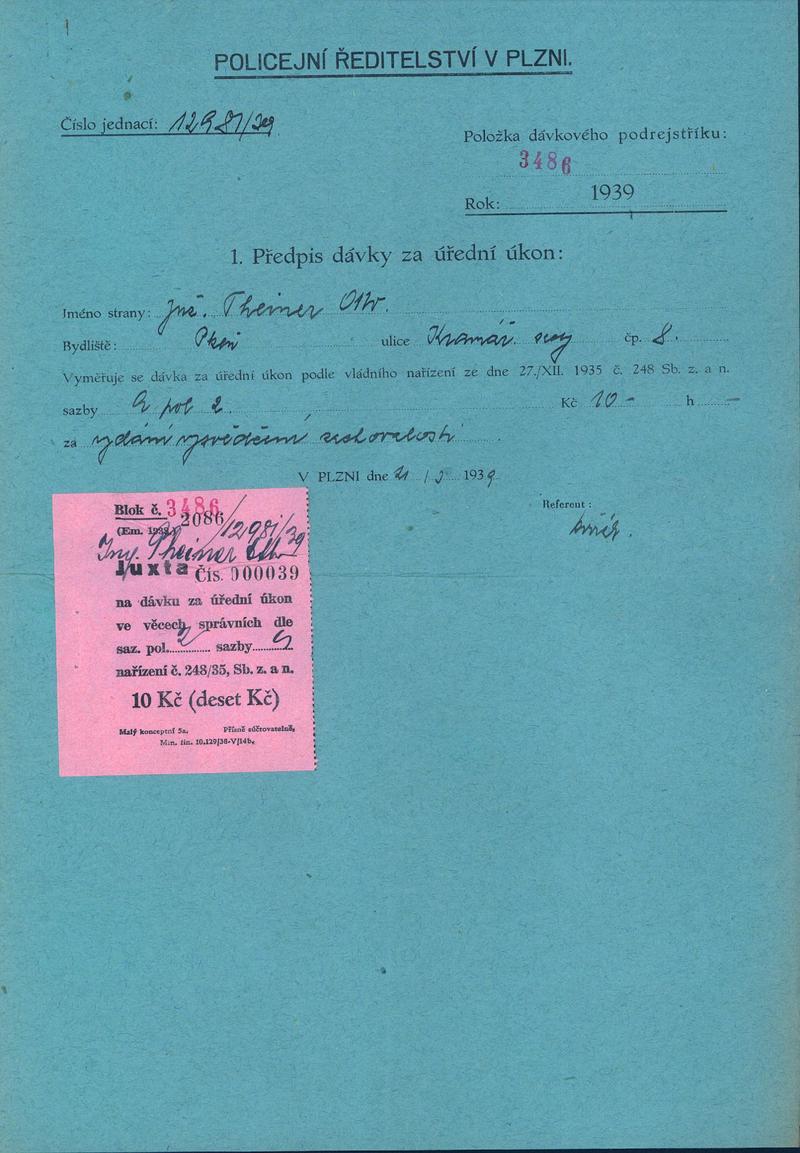 POLICEJNÍ ŘEDITELSTVÍ V PLZNI.
Číslo jednací: 12981/39
Položka dávkového podrejstříku:
3486
Rok: 1939
1. Předpis dávky za úřední úkon:
Jméno strany: Inž. Theiner Otto.
Bydliště: Plzeň ulice Kramář. sady čp. 8.
Vyměřuje se dávka za úřední úkon podle vládního nařízení ze dne 27./XII. 1935 č. 248 Sb. z. a n.
sazby pol 2. Kč 10 - h -
za vydání vysvědčení zachovalosti
V PLZNI dne 21/3 1939
Referent:
Blok č. 3486
2086/12981/39
(Em. 1938)
Ing. Theiner Otto
Juxta Čís. 000039
na dávku za úřední úkon
ve věcech správních dle
saz. pol. 2 sazby
nařízení č. 248/35, Sb. z. a n.
10 Kč (deset Kč)
Malý konceptní 5a. Přísně súčtovatelné.
Min. fin. 10.129/38-V/14b.